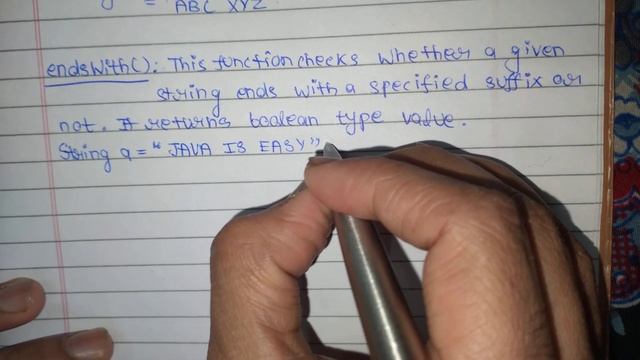 = ABC XYZ
endsWith(): This function checks whether a given
string ends with a specified suffix or
not. It returns boolean type value.
String a = "JAVA IS EASY"